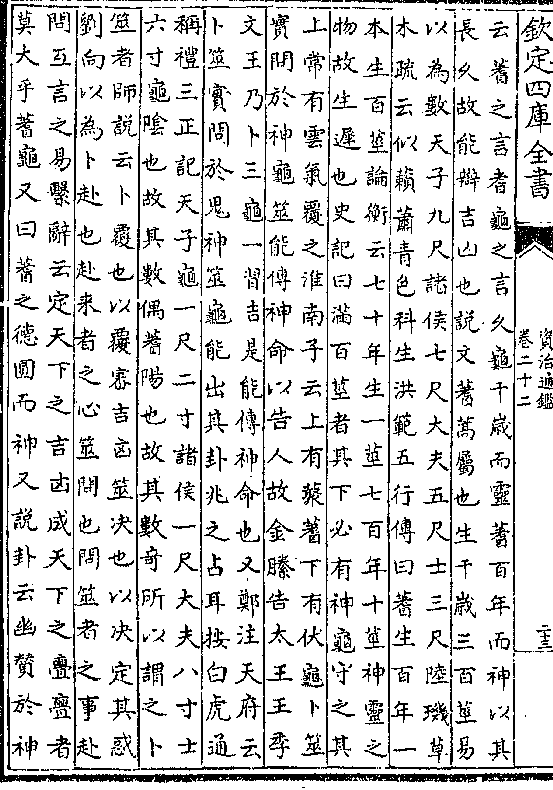 欽定四庫全書
資治通鑑
卷二十二
云蓍之言耆龜之言久龜千歳而靈蓍百年而神以其
長久故能辨吉凶也説文蓍蒿屬也生千歳三百莖易
以為數天子九尺諸侯七尺大夫五尺士三尺陸璣草
木疏云似藾蕭青色科生洪範五行傳曰蓍生百年一
本生百莖論衡云七十年生一莖七百年十莖神靈之
物故生遲也史記曰滿百莖者其下必有神龜守之其
上常有雲氣覆之淮南子云上有藂蓍下有伏龜卜筮
實問於神龜筮能傳神命以告人故金縢告太王王季
文王乃卜三龜一習吉是能傳神命也又鄭注天府云
卜筮實問於鬼神筮龜能出其卦兆之占耳按白虎通
稱禮三正記天子龜一尺二寸諸侯一尺大夫八寸士
六寸龜陰也故其數偶蓍陽也故其數竒所以謂之卜
筮者師説云卜覆也以覆審吉凶筮决也以决定其惑
劉向以為卜赴也赴来者之心筮問也問筮者之事赴
問互言之易繫辭云定天下之吉凶成天下之亹亹者
莫大乎蓍龜又曰蓍之德圓而神又説卦云幽贊於神